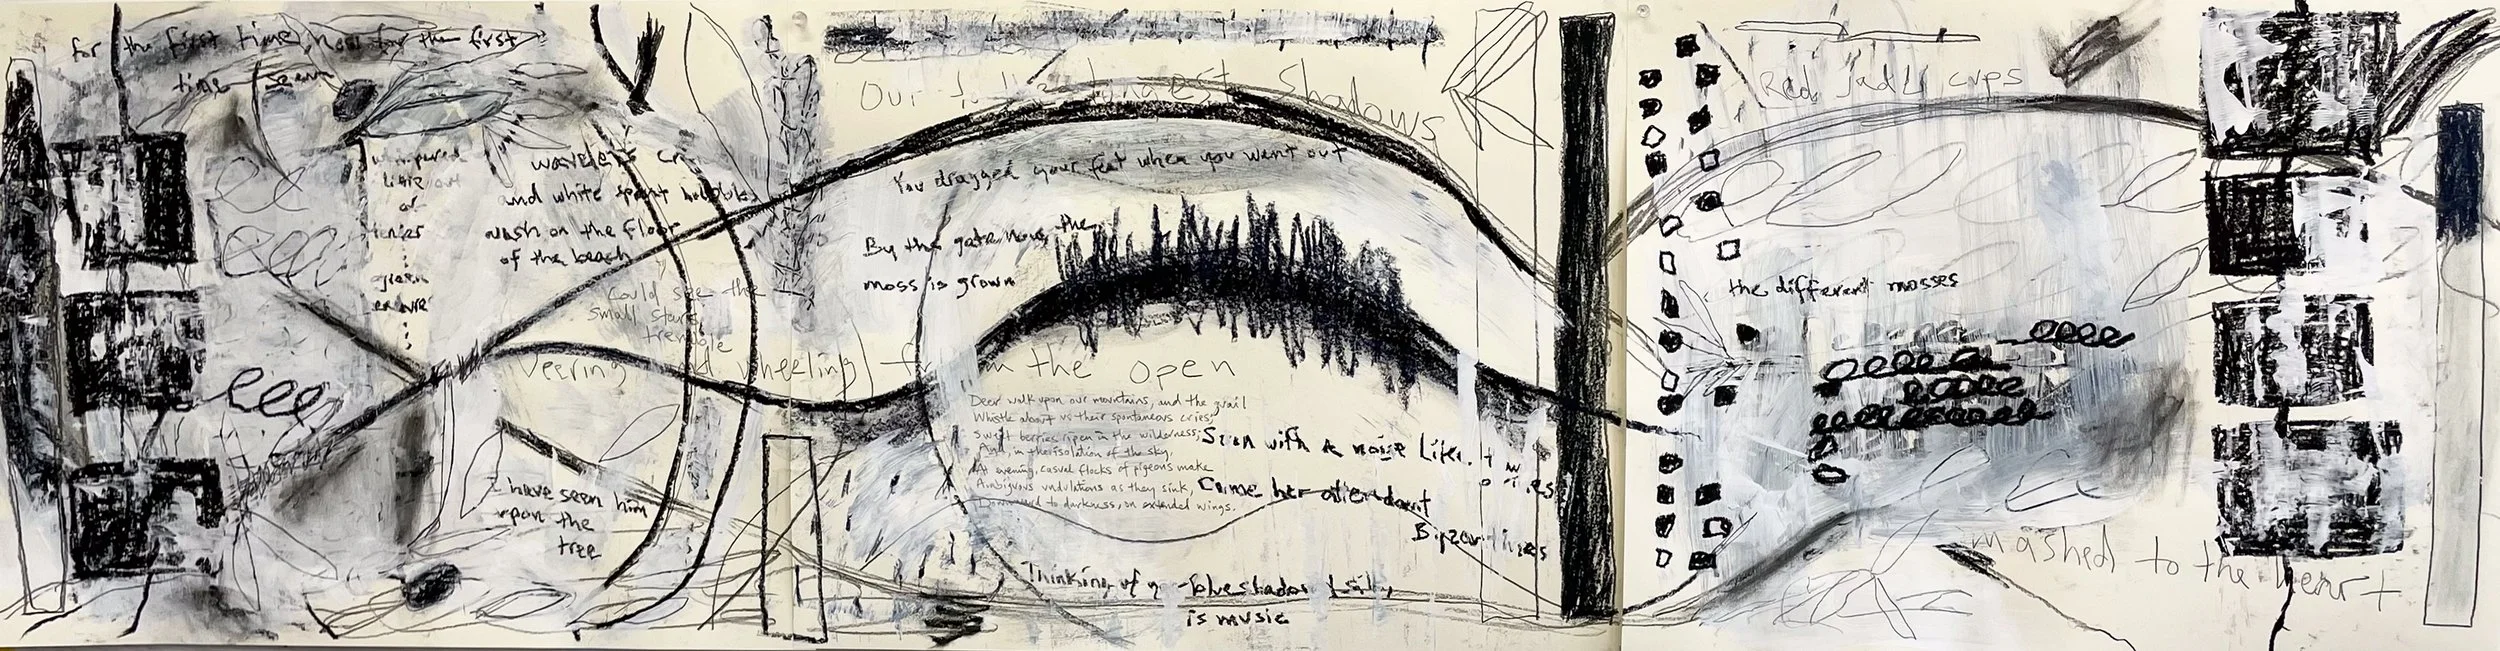 for the first time, now for the first
time seem
whimpered
little out
of
tenier
green
wavelets
and white spent bubbles
wash on the floor
of the beach
could see the
small stars
tremble
Veering and wheeling from the open
I have seen him
upon the
tree
Our longest Shadows
You dragged your feet when you went out
By the gate now, the
moss is grown
Deer walk upon our mountains, and the quail
Whistle about us their spontaneous cries;
Sweet berries ripen in the wilderness;
And, in the isolation of the sky,
At evening, casual flocks of pigeons make
Ambiguous undulations as they sink,
Downward to darkness, on extended wings.
with a noise like
Came her attendant
Byzantines
Thinking of blue shadow
is music
Red Jade cups
the different mosses
mashed to the heart